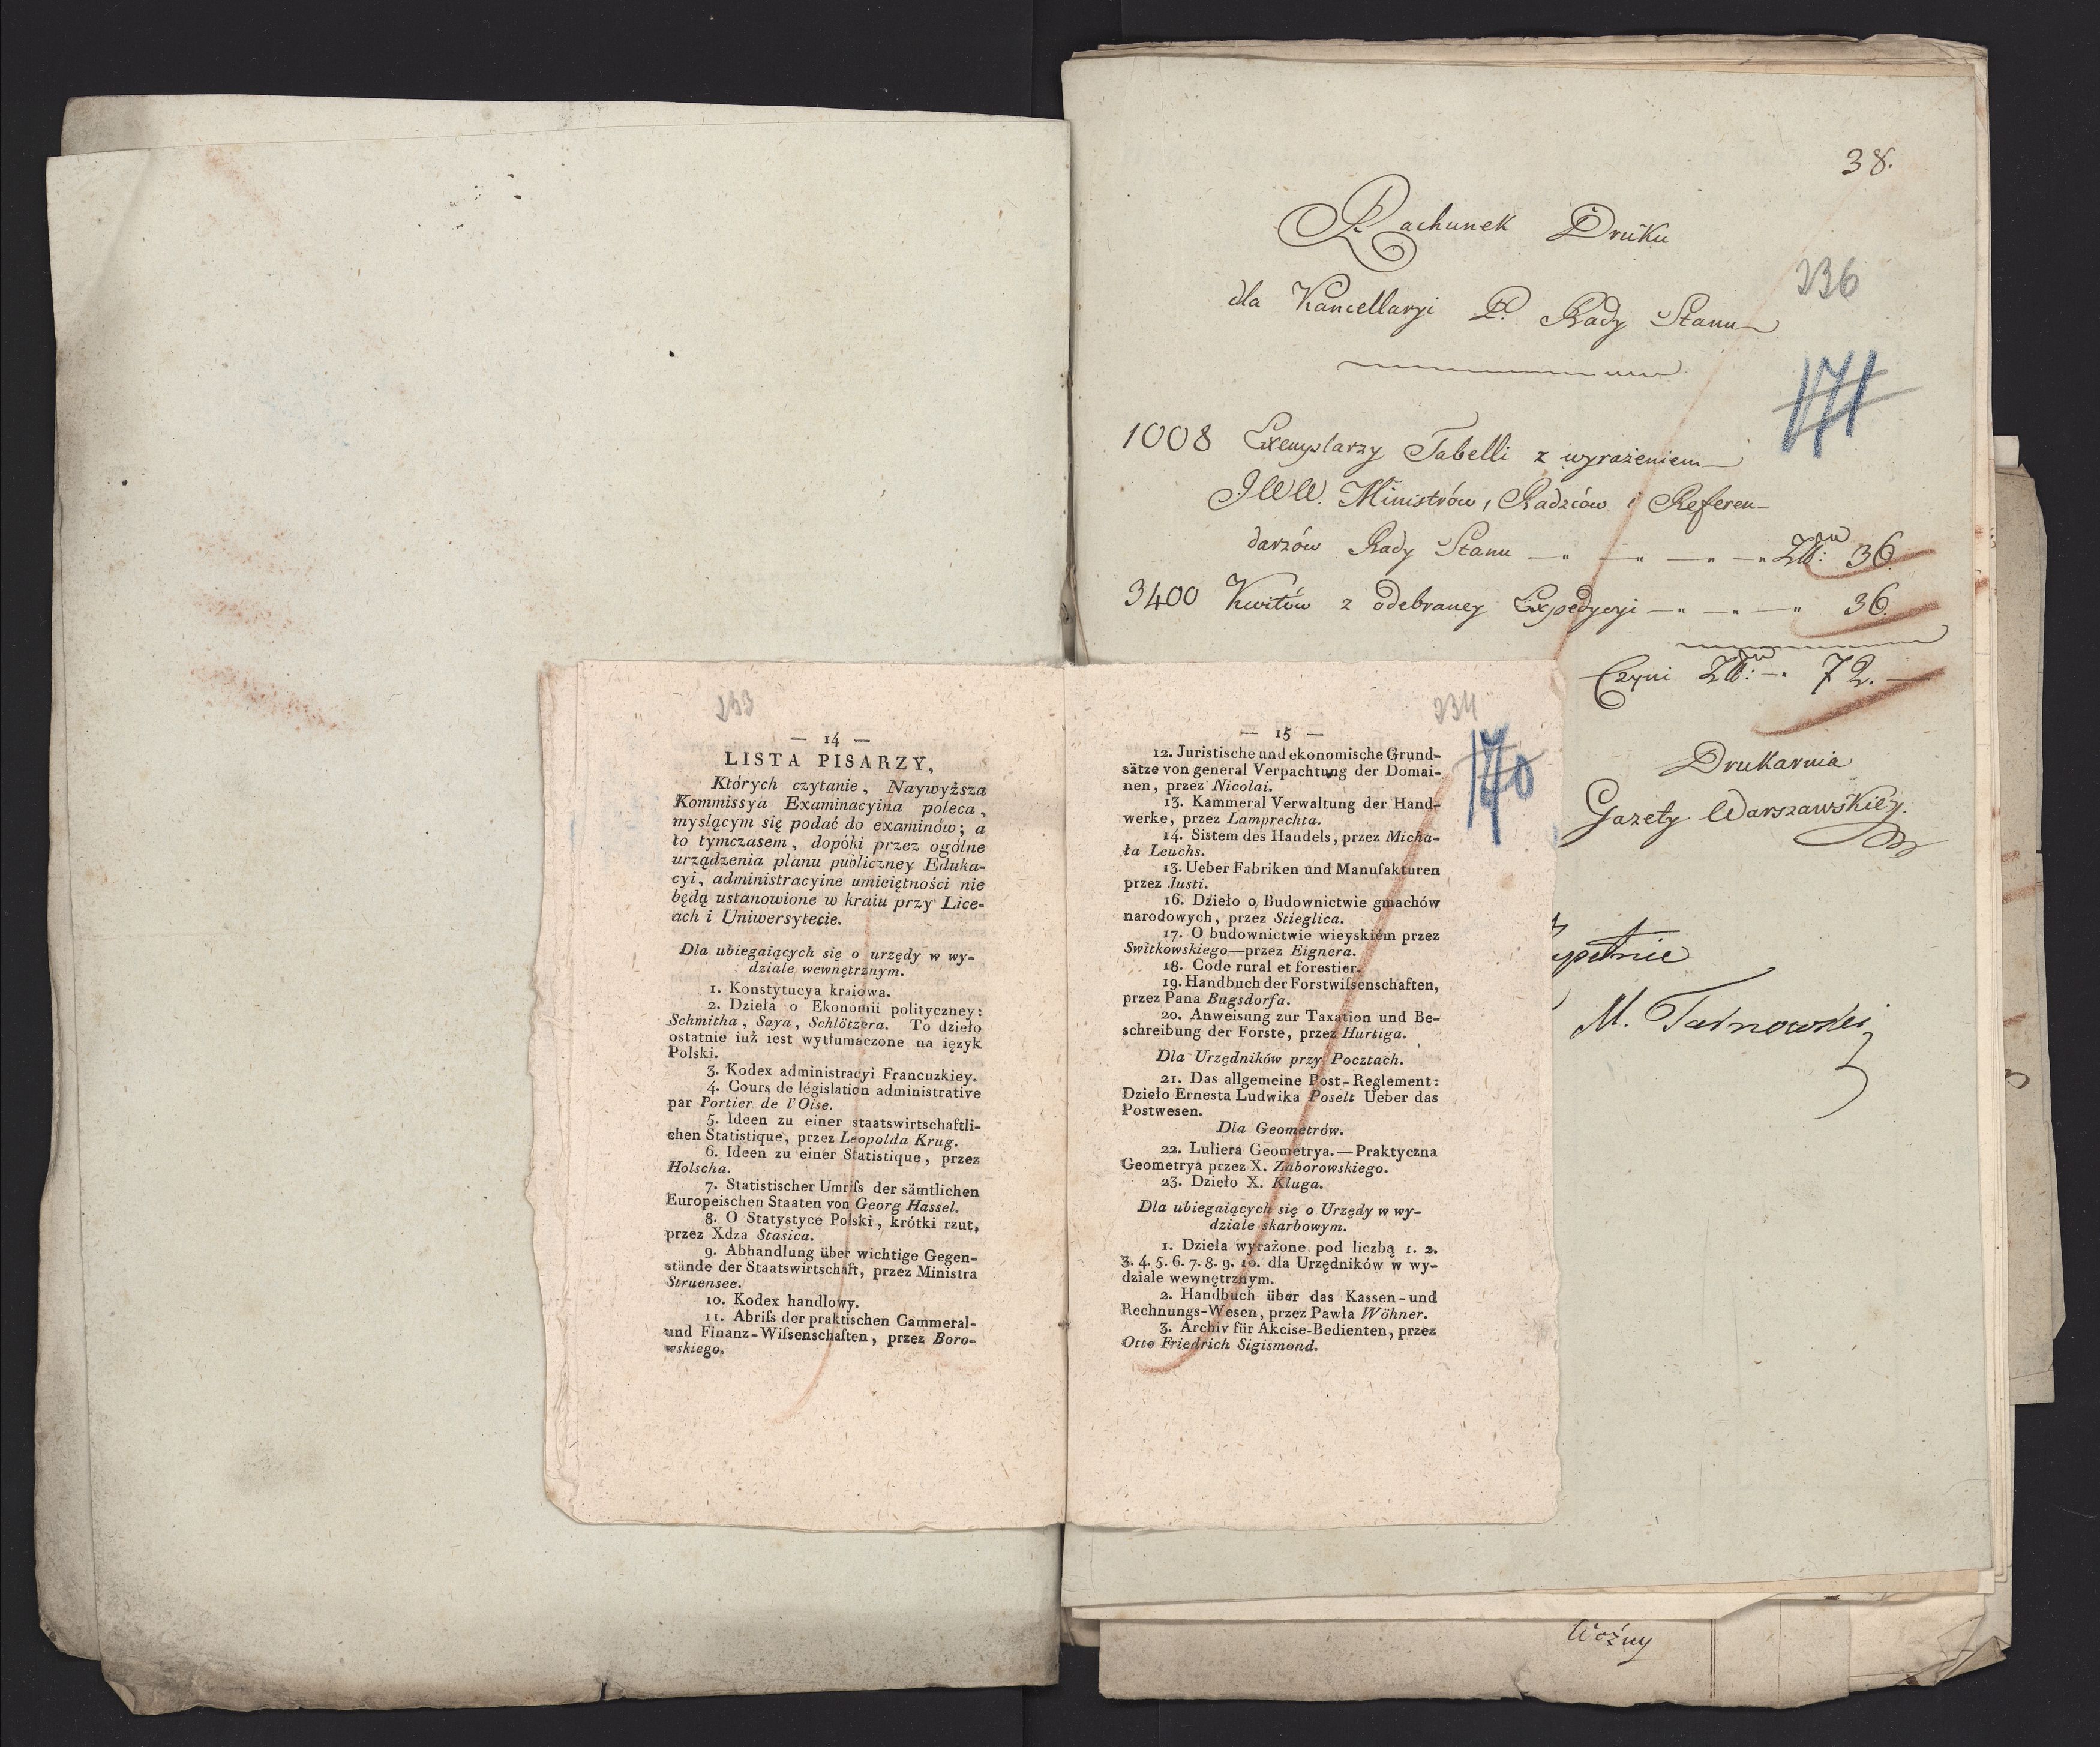 38.
Rachunek Druku
236
dla Kancellaryi P. Rady Stanu
171
1008 Exemplarzy Tabelli z wyrażeniem
JWW. Ministrów, Radzców i Referen-
darzów Rady Stanu — " — " — " — " Zł: 36.
3400 Kwitów z odebraney Expedycyi — " — " — " 36.
Czyni Zł: — " 72. —
Drukarnia
Gazety Warszawskiey.
M. Tarnowski
Woźny
233
— 14 —
LISTA PISARZY,
Których czytanie, Naywyższa
Kommissya Examinacyina poleca,
myslącym się podać do examinów; a
to tymczasem, dopóki przez ogólne
urządzenia planu publiczney Eduka-
cyi, administracyine umieiętności nie
będą ustanowione w kraiu przy Lice-
ach i Uniwersytecie.
Dla ubiegaiących się o urzędy w wy-
dziale wewnętrznym.
1. Konstytucya kraiowa.
2. Dzieła o Ekonomii polityczney:
Schmitha, Saya, Schlötzera. To dzieło
ostatnie iuż iest wytłumaczone na ięzyk
Polski.
3. Kodex administracyi Francuzkiey.
4. Cours de législation administrative
par Portier de l'Oise.
5. Ideen zu einer staatswirtschaftli-
chen Statistique, przez Leopolda Krug.
6. Ideen zu einer Statistique, przez
Holscha.
7. Statistischer Umriſs der sämtlichen
Europeischen Staaten von Georg Hassel.
8. O Statystyce Polski, krótki rzut,
przez Xdza Stasica.
9. Abhandlung über wichtige Gegen-
stände der Staatswirtschaft, przez Ministra
Struensee.
10. Kodex handlowy.
11. Abriſs der praktischen Cammeral-
und Finanz-Wiſsenschaften, przez Boro-
wskiego.
234
170
— 15 —
12. Juristische und ekonomische Grund-
sätze von general Verpachtung der Domai-
nen, przez Nicolai.
13. Kammeral Verwaltung der Hand-
werke, przez Lamprechta.
14. Sistem des Handels, przez Micha-
ła Leuchs.
13. Ueber Fabriken und Manufakturen
przez Justi.
16. Dzieło o Budownictwie gmachów
narodowych, przez Stieglica.
17. O budownictwie wieyskiém przez
Switkowskiego—przez Eignera.
18. Code rural et forestier.
19. Handbuch der Forstwiſsenschaften,
przez Pana Bugsdorfa.
20. Anweisung zur Taxation und Be-
schreibung der Forste, przez Hurtiga.
Dla Urzędników przy Pocztach.
21. Das allgemeine Post-Reglement:
Dzieło Ernesta Ludwika Poselt Ueber das
Postwesen.
Dla Geometrów.
22. Luliera Geometrya.—Praktyczna
Geometrya przez X. Zaborowskiego.
23. Dzieło X. Kluga.
Dla ubiegaiących się o Urzędy w wy-
dziale skarbowym.
1. Dzieła wyrażone pod liczbą 1. 2.
3. 4. 5. 6. 7. 8. 9. 10. dla Urzędników w wy-
dziale wewnętrznym.
2. Handbuch über das Kassen-und
Rechnungs-Wesen, przez Pawła Wöhner.
3. Archiv für Akcise-Bedienten, przez
Otto Friedrich Sigismond.